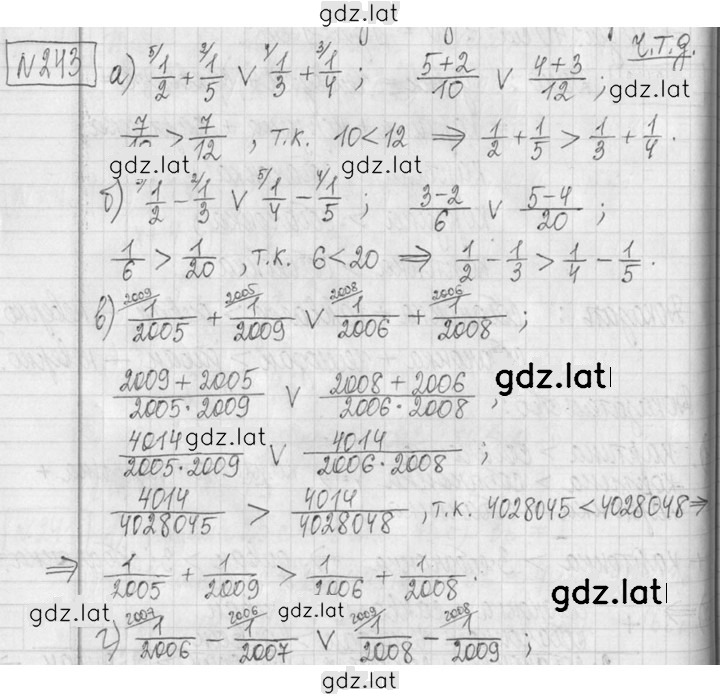 gdz.lat
ч.т.д.
N243 а) 5/1/2 + 2/1/5 ∨ 4/1/3 + 3/1/4 ; (5+2)/10 ∨ (4+3)/12 ;
gdz.lat
7/10 > 7/12 , т.к. 10<12 ⇒ 1/2 + 1/5 > 1/3 + 1/4 .
gdz.lat gdz.lat
б) 3/1/2 - 2/1/3 ∨ 5/1/4 - 4/1/5 ; (3-2)/6 ∨ (5-4)/20 ;
1/6 > 1/20 , т.к. 6<20 ⇒ 1/2 - 1/3 > 1/4 - 1/5 .
в) 2009/1/2005 + 2005/1/2009 ∨ 2008/1/2006 + 2006/1/2008 ;
(2009+2005)/(2005·2009) ∨ (2008+2006)/(2006·2008) ;
gdz.lat
4014/(2005·2009) ∨ 4014/(2006·2008) ;
gdz.lat
4014/4028045 > 4014/4028048 , т.к. 4028045<4028048 ⇒
⇒ 1/2005 + 1/2009 > 1/2006 + 1/2008 .
gdz.lat gdz.lat gdz.lat
г) 2007/1/2006 - 2006/1/2007 ∨ 2009/1/2008 - 2008/1/2009 ;
gdz.lat